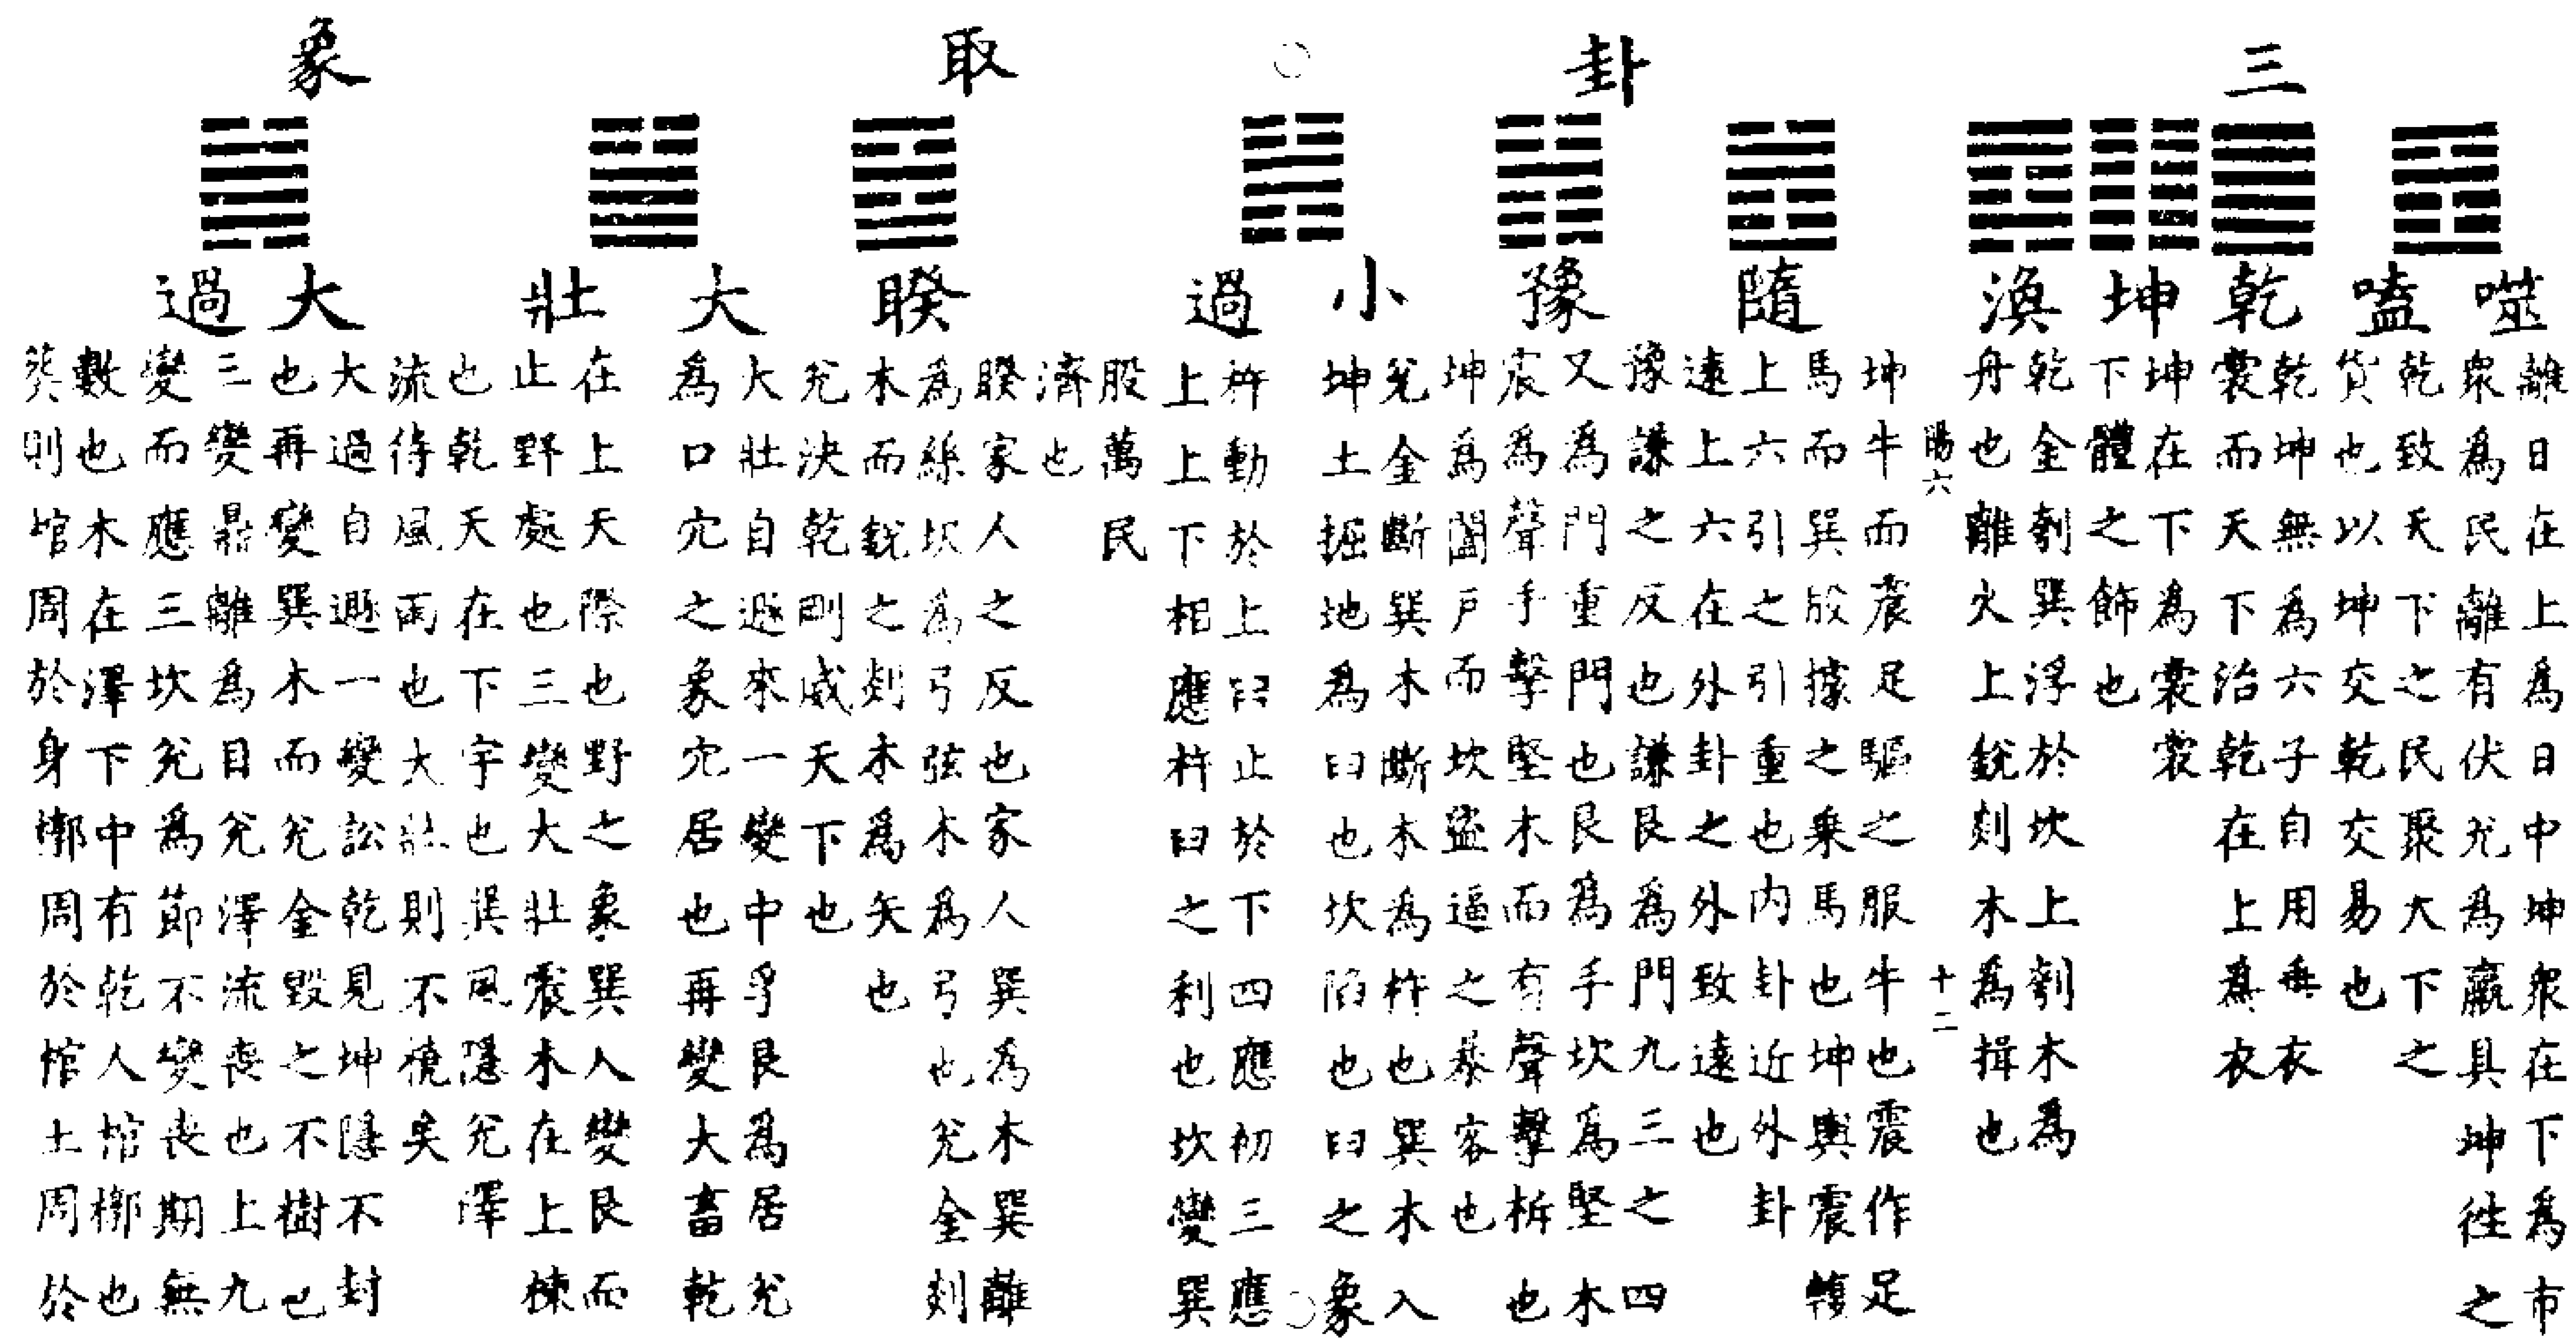 三卦取象
噬嗑
離日在上為日中坤衆在下為市
衆為民離有伏兌為羸具坤徃之
乾致天下之民聚大下之
貨也以坤交乾交易也
乾
坤
乾坤無為六子自用垂衣
裳而天下治乾在上為衣
坤在下為裳裳
下體之飾也
渙
乾金刳巽浮於坎上刳木為
舟也離火上銳剡木為揖也
陽六 十二
隨
坤牛而震足驅之服牛也震作足
馬而巽股據之乗馬也坤輿震輹
上六引之引重也內卦近外卦
遠上六在外卦之外致遠也
豫
豫謙之反也謙艮為門九三之四
又為門重門也艮為手坎為堅木
震為聲手擊堅木而有聲擊柝也
坤為闔戶而坎盜逼之暴客也
小過
兌金斷巽木斷木為杵也巽木入
坤土掘地為臼也坎陷也臼之象
杵動於上臼止於下四應初三應
上上下相應杵臼之利也坎變巽
股萬民
濟也
睽
睽家人之反也家人巽為木巽離
為絲坎為弓弦木為弓也兌金剡
木而銳之剡木為矢也
兌決乾剛威天下也
大壯
大壯自遯來一變中孚艮為居兌
為口穴之象穴居也再變大畜乾
在上天際也野之象巽入變艮而
止野處也三變大壯震木在上棟
也乾天在下宇也巽風隱兌澤
流待風雨也大壯則不橈矣
大過
大過自遯一變訟乾見坤隱不封
也再變巽木而兌金毀之不樹也
三變鼎離為目兌澤流喪也上九
變而應三坎兌為節不變喪期無
數也木在澤下中有乾人棺槨也
葬則棺周於身槨周於棺土周於